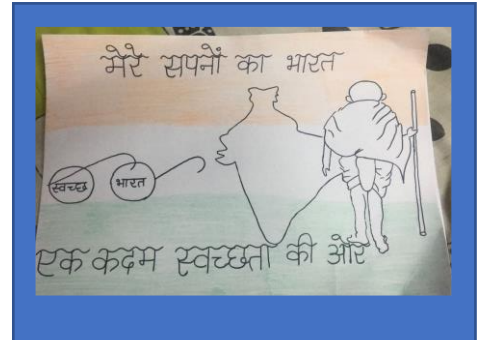 मेरे सपनों का भारत
स्वच्छ भारत
एक कदम स्वच्छता की ओर